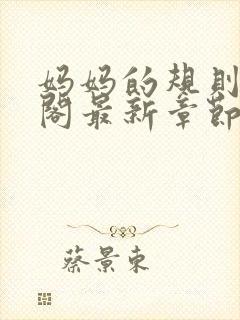 妈妈的规则
阁最新章节
蔡景东